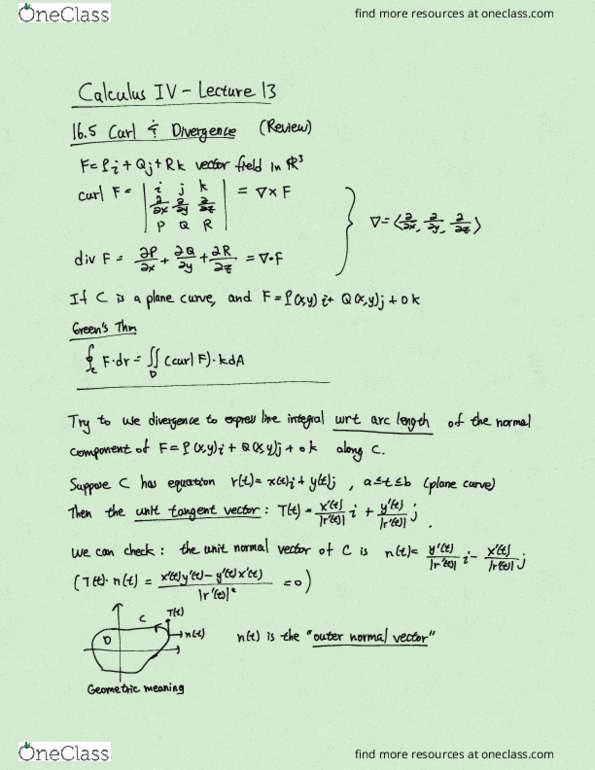 OneClass
find more resources at oneclass.com
Calculus IV - Lecture 13
16.5 Curl & Divergence (Review)
F = Pi + Qj + Rk vector field in ℝ³
curl F = | i j k | = ∇ × F
∂/∂x ∂/∂y ∂/∂z
P Q R
∇ = ⟨∂/∂x, ∂/∂y, ∂/∂z⟩
div F = ∂P/∂x + ∂Q/∂y + ∂R/∂z = ∇·F
If C is a plane curve, and F = P(x,y)i + Q(x,y)j + 0k
Green's Thm
∮_C F·dr = ∬_D (curl F)·k dA
Try to use divergence to express line integral wrt arc length of the normal
component of F = P(x,y)i + Q(x,y)j + 0k along C.
Suppose C has equation r(t) = x(t)i + y(t)j, a≤t≤b (plane curve)
Then the unit tangent vector: T(t) = x'(t)/|r'(t)| i + y'(t)/|r'(t)| j.
We can check: the unit normal vector of C is n(t) = y'(t)/|r'(t)| i - x'(t)/|r'(t)| j
(T(t)·n(t) = x'(t)y'(t) - y'(t)x'(t) / |r'(t)|² = 0)
C
T(t)
D
n(t)
n(t) is the "outer normal vector"
Geometric meaning
OneClass
find more resources at oneclass.com